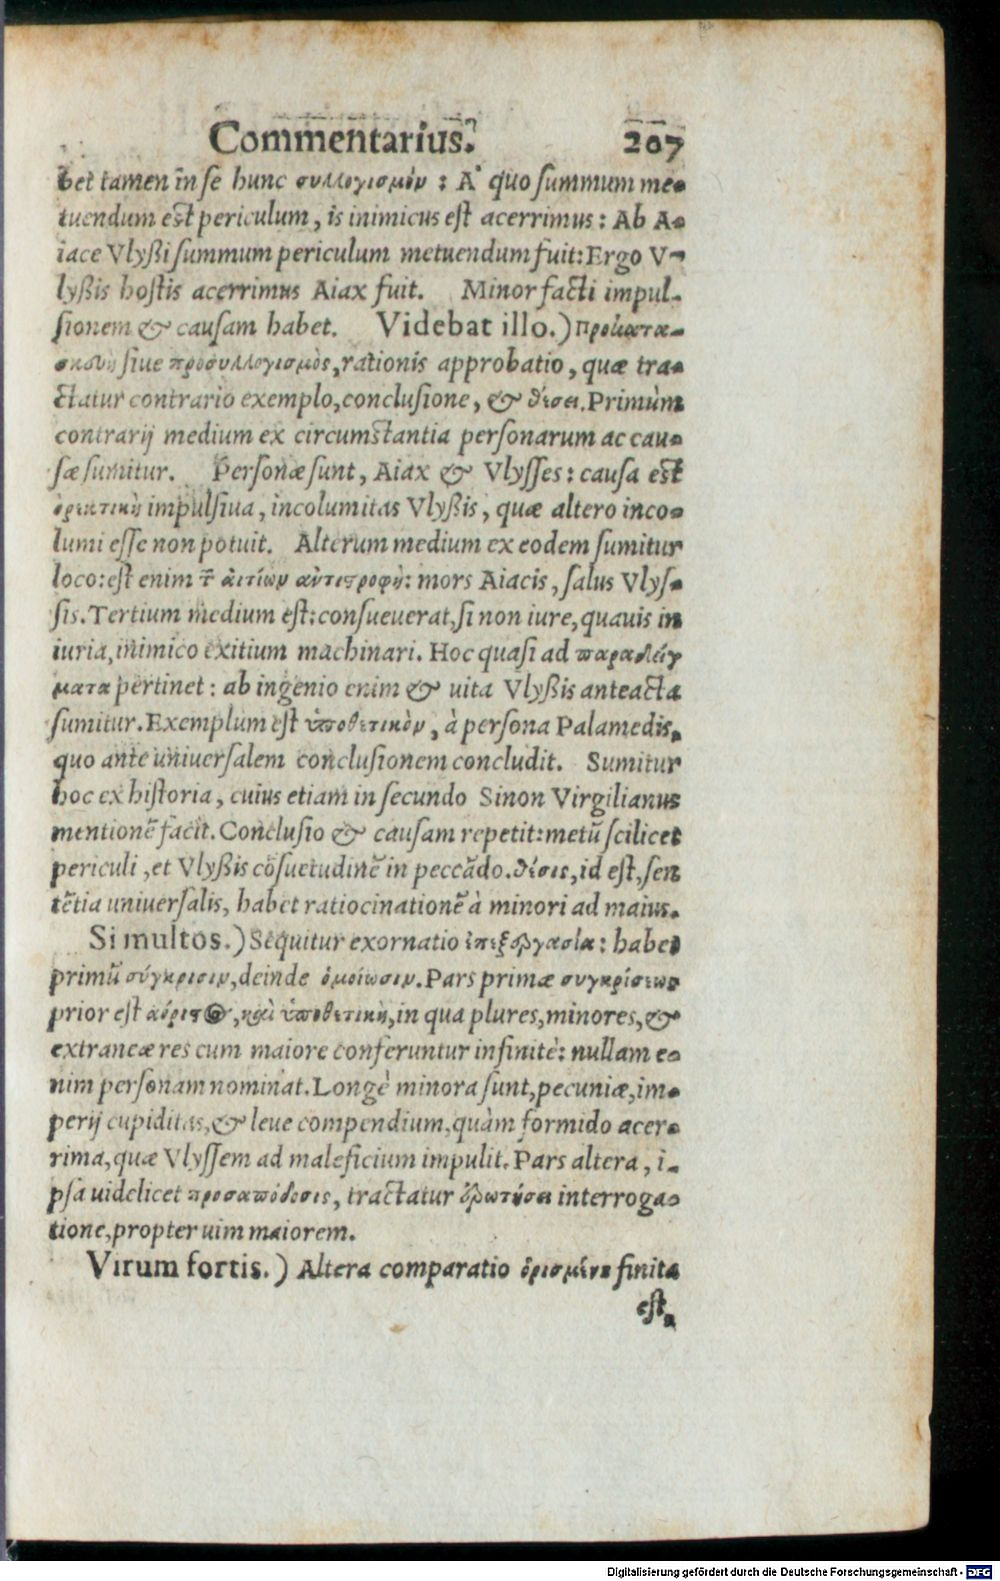 Commentarius. 207
bet tamen in se hunc συλλογισμὸν : A' quo summum me-
tuendum est periculum, is inimicus est acerrimus: Ab A-
iace Vlyßi summum periculum metuendum fuit: Ergo V-
lyßis hostis acerrimus Aiax fuit. Minor facti impul-
sionem & causam habet. Videbat illo.) Προκατα-
σκευὴ siue προσυλλογισμὸς, rationis approbatio, quæ tra-
ctatur contrario exemplo, conclusione, & θέσει. Primùm
contrarij medium ex circumstantia personarum ac cau-
sæ sumitur. Personæ sunt, Aiax & Vlysses: causa est
ὁρμητικὴ impulsiua, incolumitas Vlyßis, quæ altero inco-
lumi esse non potuit. Alterum medium ex eodem sumitur
loco: est enim τ͂ αἰτίων ἀντιστροφὴ: mors Aiacis, salus Vlys-
sis. Tertium medium est: consueuerat, si non iure, quauis in
iuria, inimico exitium machinari. Hoc quasi ad παραδείγ
ματα pertinet: ab ingenio enim & uita Vlyßis anteacta
sumitur. Exemplum est ὑποθετικὸν, à persona Palamedis,
quo ante uniuersalem conclusionem concludit. Sumitur
hoc ex historia, cuius etiam in secundo Sinon Virgilianus
mentionē facit. Conclusio & causam repetit: metū scilicet
periculi, et Vlyßis cōsuetudinē in peccādo. θέσις, id est, sen
tētia uniuersalis, habet ratiocinationē à minori ad maius.
Si multos.) Sequitur exornatio ἐπεξεργασία: habet
primū σύγκρισιν, deinde ὁμοίωσιν. Pars primæ συγκρίσεως
prior est ἀόριστος, καὶ ὑποθετικὴ, in qua plures, minores, &
extraneæ res cum maiore conferuntur infinitè: nullam e-
nim personam nominat. Longè minora sunt, pecuniæ, im-
perij cupiditas, & leue compendium, quàm formido acer-
rima, quæ Vlyssem ad maleficium impulit. Pars altera, i-
psa uidelicet προσαπόδοσις, tractatur ἐρωτήσει interroga-
tione, propter uim maiorem.
Virum fortis.) Altera comparatio ὁρισμένη finita
est,
Digitalisierung gefördert durch die Deutsche Forschungsgemeinschaft - DFG